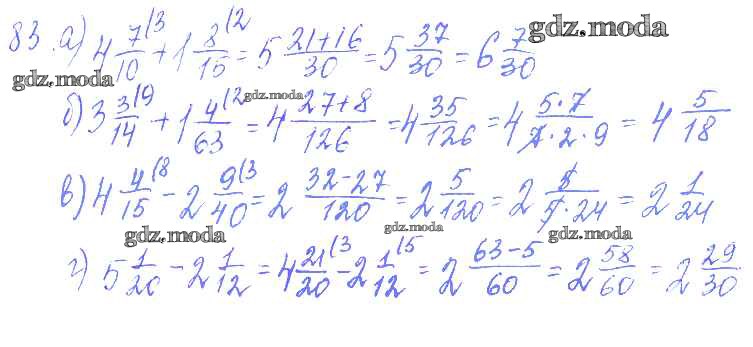 gdz.moda
83. а) 4 7/10 (3 + 1 8/15 (2 = 5 21+16/30 = 5 37/30 = 6 7/30
gdz.moda
gdz.moda
б) 3 3/14 (9 + 1 4/63 (2 = 4 27+8/126 = 4 35/126 = 4 5·7/7·2·9 = 4 5/18
в) 4 4/15 (8 - 2 9/40 (3 = 2 32-27/120 = 2 5/120 = 2 5/5·24 = 2 1/24
gdz.moda gdz.moda gdz.moda
г) 5 1/20 - 2 1/12 = 4 21/20 (3 - 2 1/12 (5 = 2 63-5/60 = 2 58/60 = 2 29/30